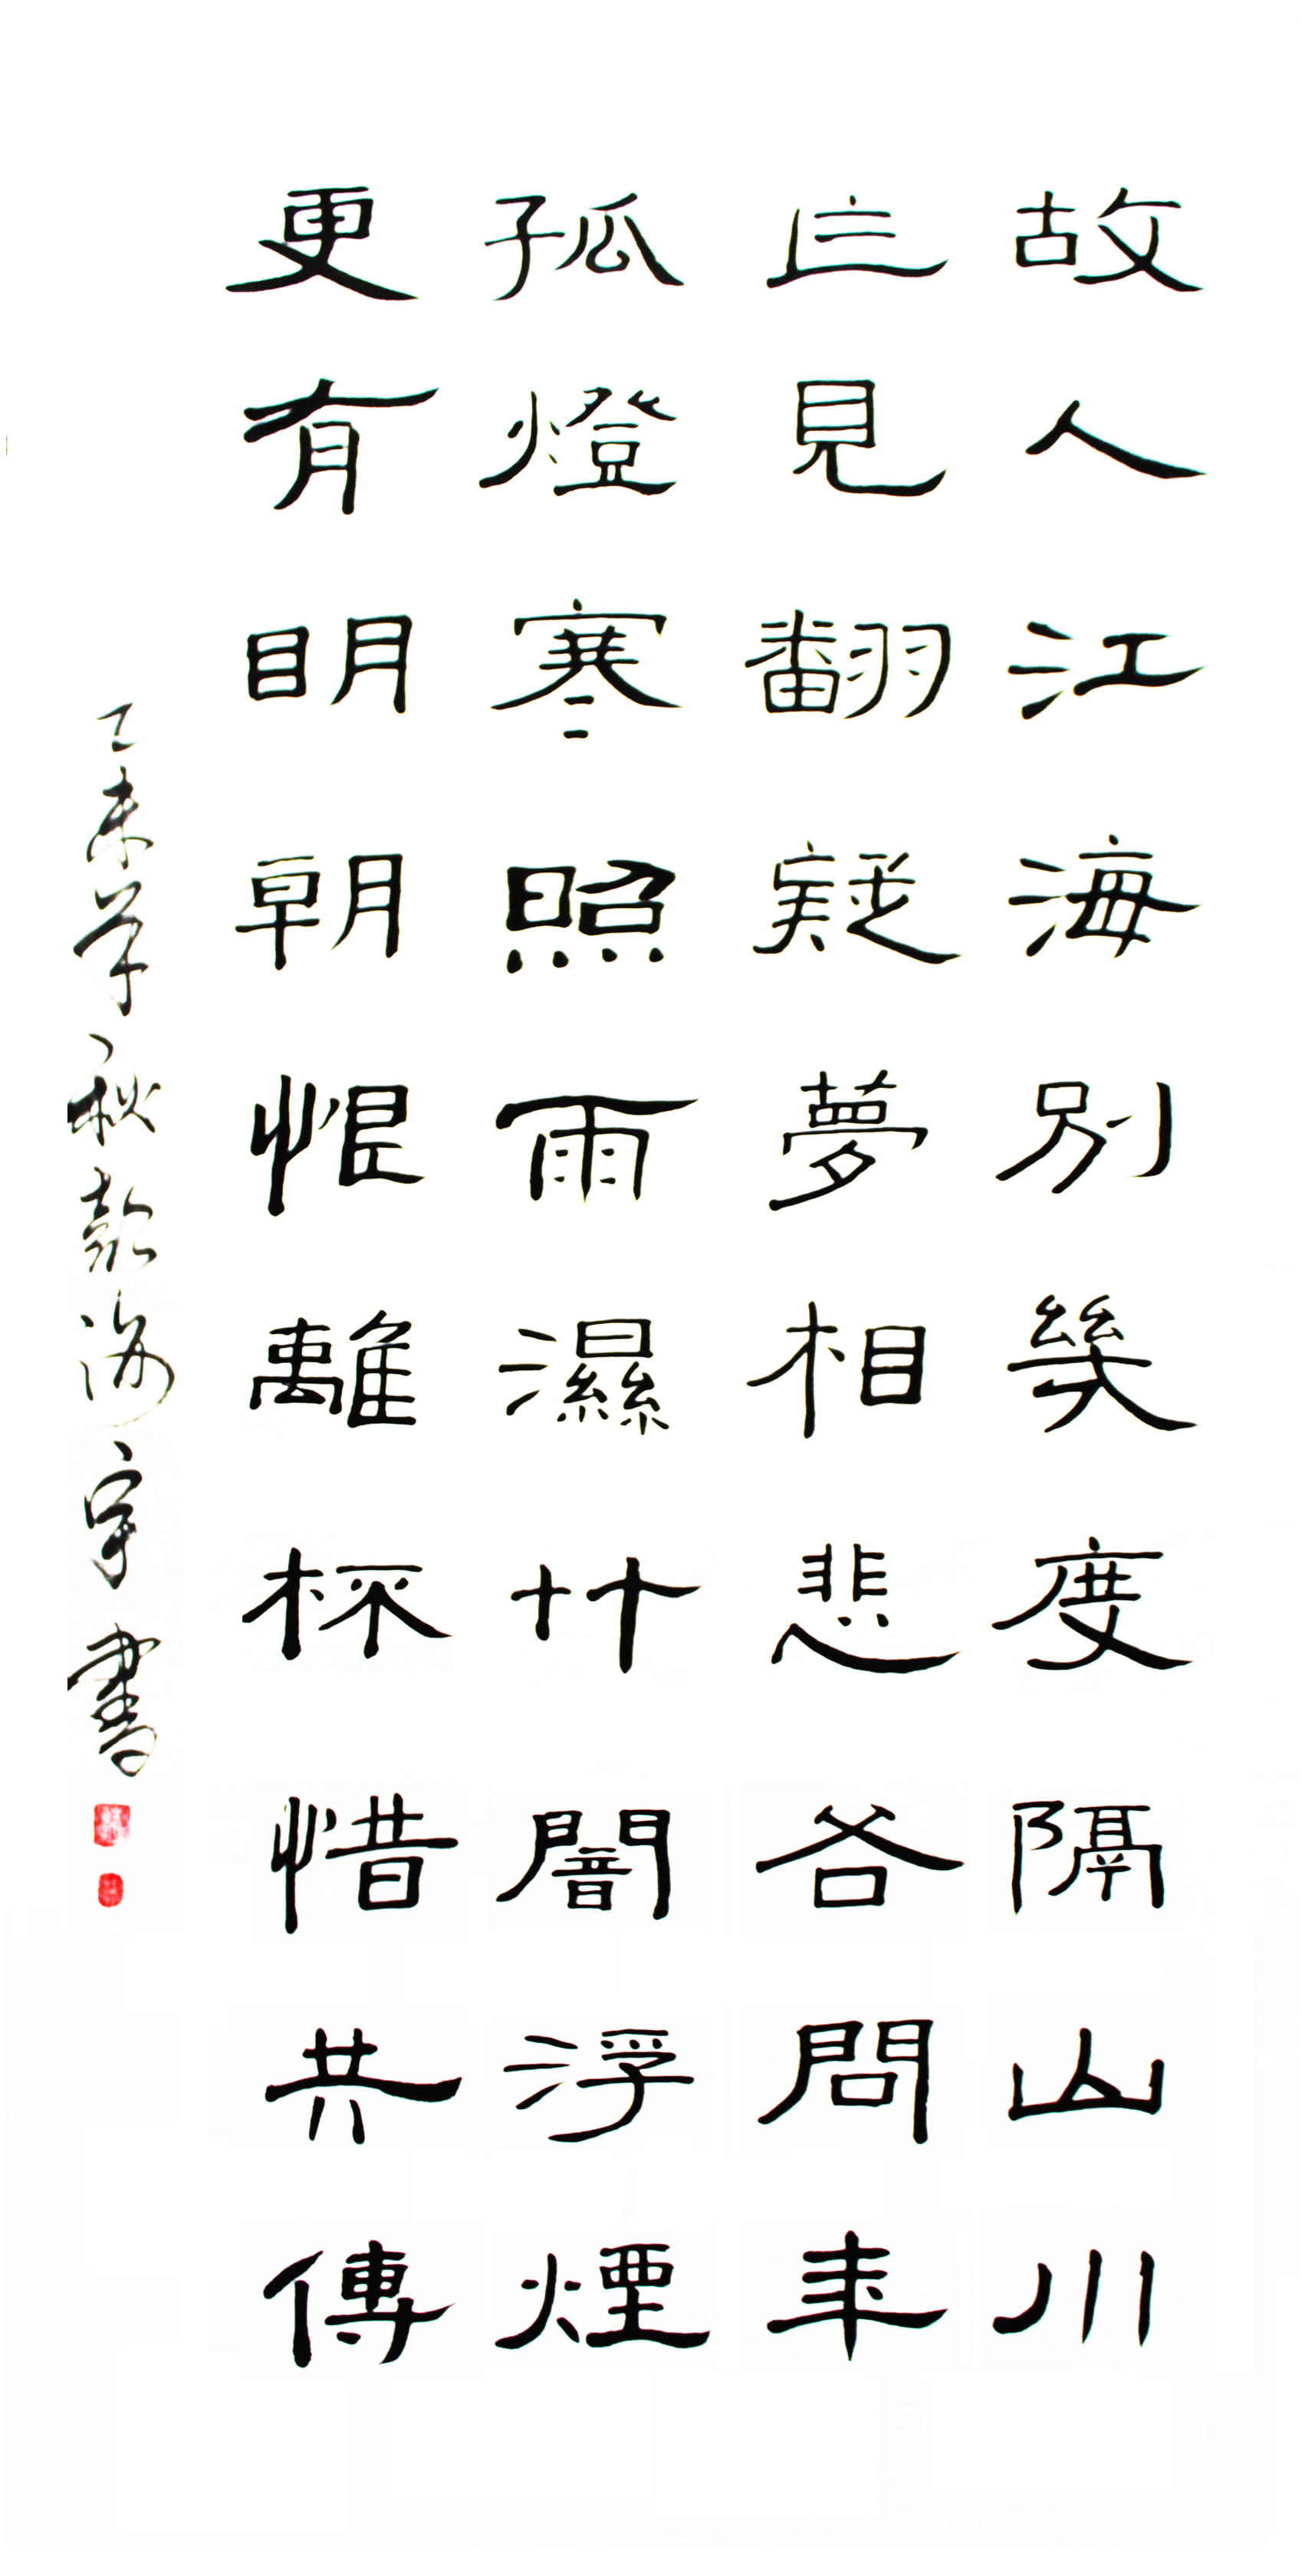 故人江海別幾度隔山川
乍見翻疑夢相悲各問年
孤燈寒照雨濕竹闇浮煙
更有明朝恨離杯惜共傳
乙未秋海宇書